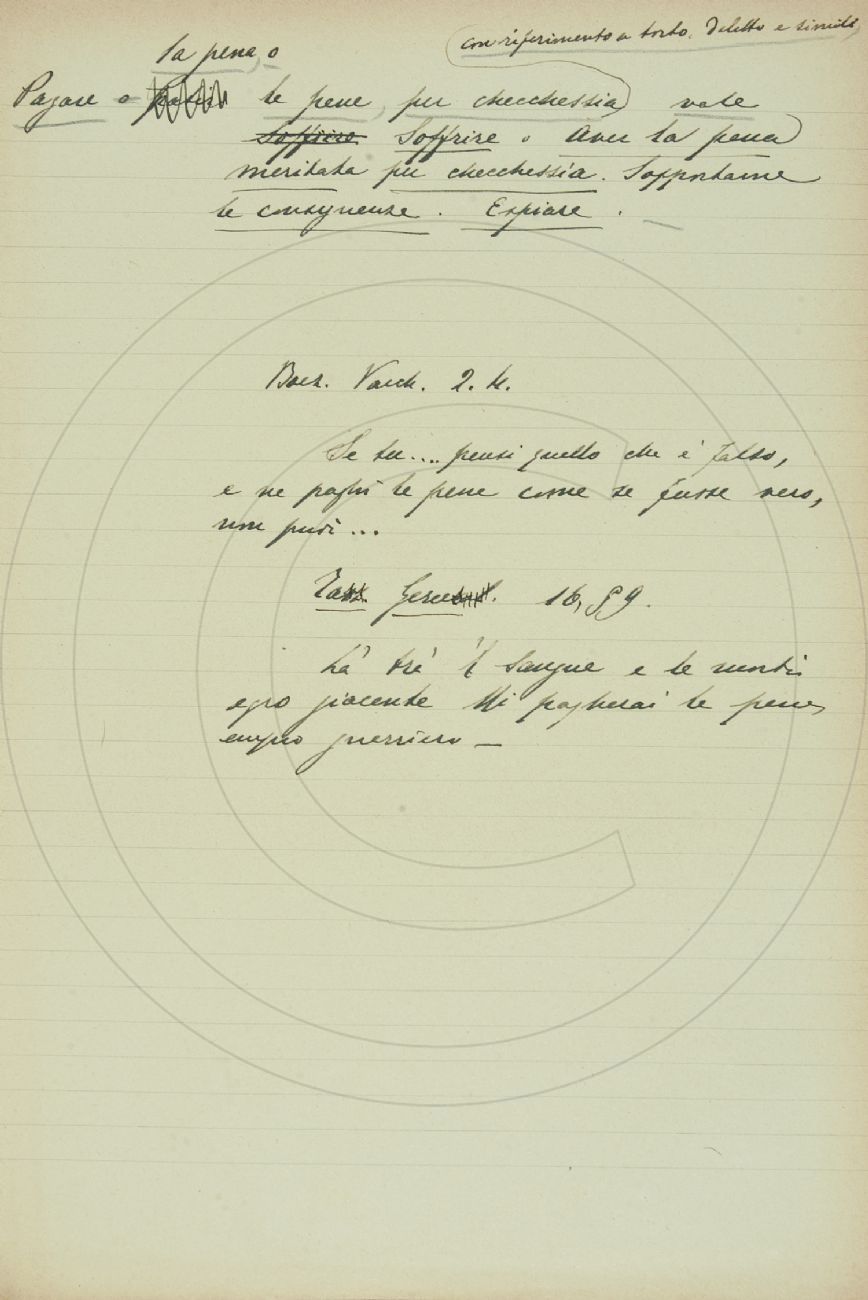 la pena, o
con riferimento a torto, delitto e simile
Pagare o le pene, per checchessia, vale
Soffrire Soffrire o Aver la pena
meritata per checchessia. Sopportarne
le conseguenze. Espiare.
Boez. Varch. 2. 4.
Se tu.... pensi quello che è falso,
e ne paghi le pene come se fusse vero,
non puoi...
Tass. Gerus. 16, 59.
Là tra 'l sangue e le morti
egro giacente Mi pagherai le pene,
empio guerriero —